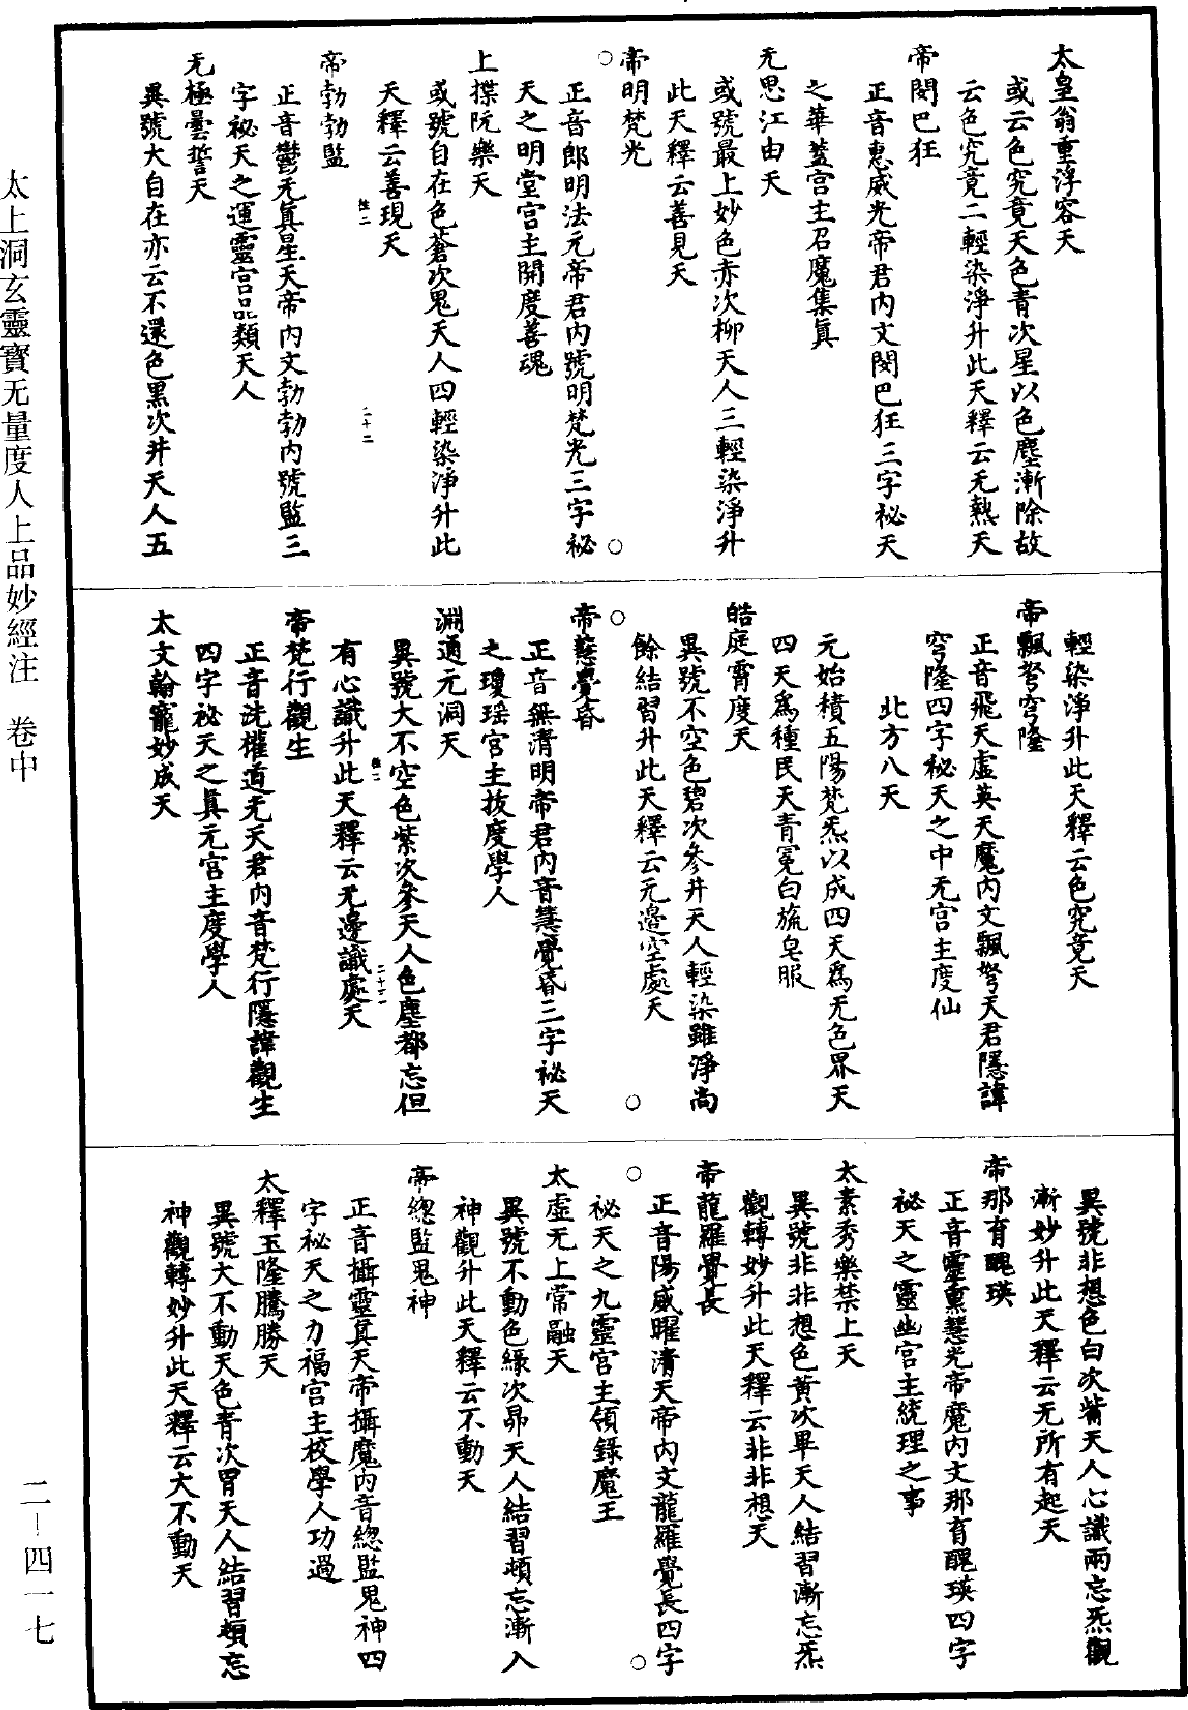 太皇翁重浮容天
或云色究竟天色青次星以色塵漸除故
云色究竟二輕染淨升此天釋云无熱天
帝閔巴狂
正音惠威光帝君內文閔巴狂三字祕天
之華蓋宮主召魔集眞
无思江由天
或號最上妙色赤次柳天人三輕染淨升
此天釋云善見天
帝明梵光
正音郎明法元帝君內號明梵光三字祕
天之明堂宮主開度善魂
上揲阮樂天
或號自在色蒼次鬼天人四輕染淨升此
天釋云善現天
二十二
帝勃勃監
正音鬱无眞星天帝內文勃勃內號監三
字祕天之運靈宮品類天人
无極曇誓天
異號大自在亦云不還色黑次井天人五
輕染淨升此天釋云色究竟天
帝飄弩穹隆
正音飛天虛英天魔內文飄弩天君隱諱
穹隆四字祕天之中无宮主度仙
北方八天
元始積五陽梵炁以成四天爲无色界天
四天爲種民天青冕白旒皂服
皓庭霄度天
異號不空色碧次參井天人輕染雖淨尚
餘結習升此天釋云无邊空處天
帝慧覺昏
正音無清明帝君內音慧覺昏三字祕天
之瓊瑤宮主拔度學人
淵通元洞天
異號大不空色紫次參天人色塵都忘但
二十三
有心識升此天釋云无邊識處天
帝梵行觀生
正音洗權道无天君內音梵行隱諱觀生
四字祕天之眞元宮主度學人
太文翰寵妙成天
異號非想色白次觜天人心識兩忘炁觀
漸妙升此天釋云无所有起天
帝那育醜瑛
正音靈熏慧光帝魔內文那育醜瑛四字
祕天之靈幽宮主統理之事
太素秀樂禁上天
異號非非想色黃次畢天人結習漸忘炁
觀轉妙升此天釋云非非想天
帝龍羅覺長
正音陽威曜清天帝內文龍羅覺長四字
祕天之九靈宮主領錄魔王
太虛无上常融天
異號不動色綠次昴天人結習頓忘漸入
神觀升此天釋云不動天
帝總監鬼神
正音攝靈眞天帝攝魔內音總監鬼神四
字祕天之力福宮主校學人功過
太釋玉隆騰勝天
異號大不動天色青次胃天人結習頓忘
神觀轉妙升此天釋云大不動天
太上洞玄靈寶无量度人上品妙經注 卷中
二—四一七